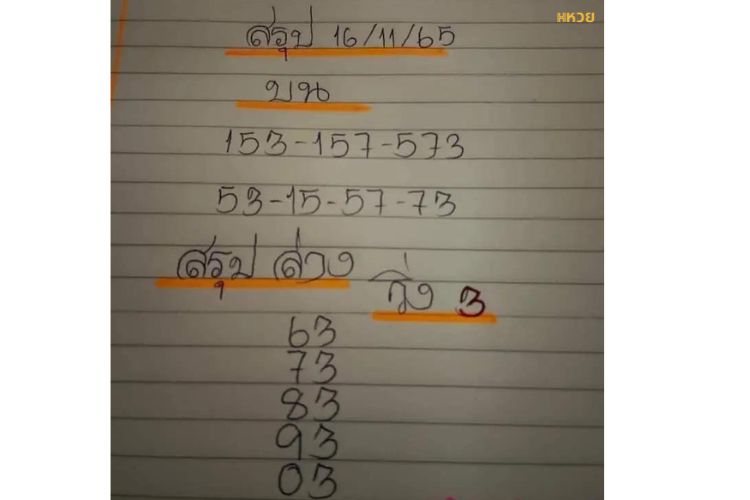 หหวย
สรุป 16/11/65
บน
153-157-573
53-15-57-73
สรุป ล่าง
วิ่ง 3
63
73
83
93
03